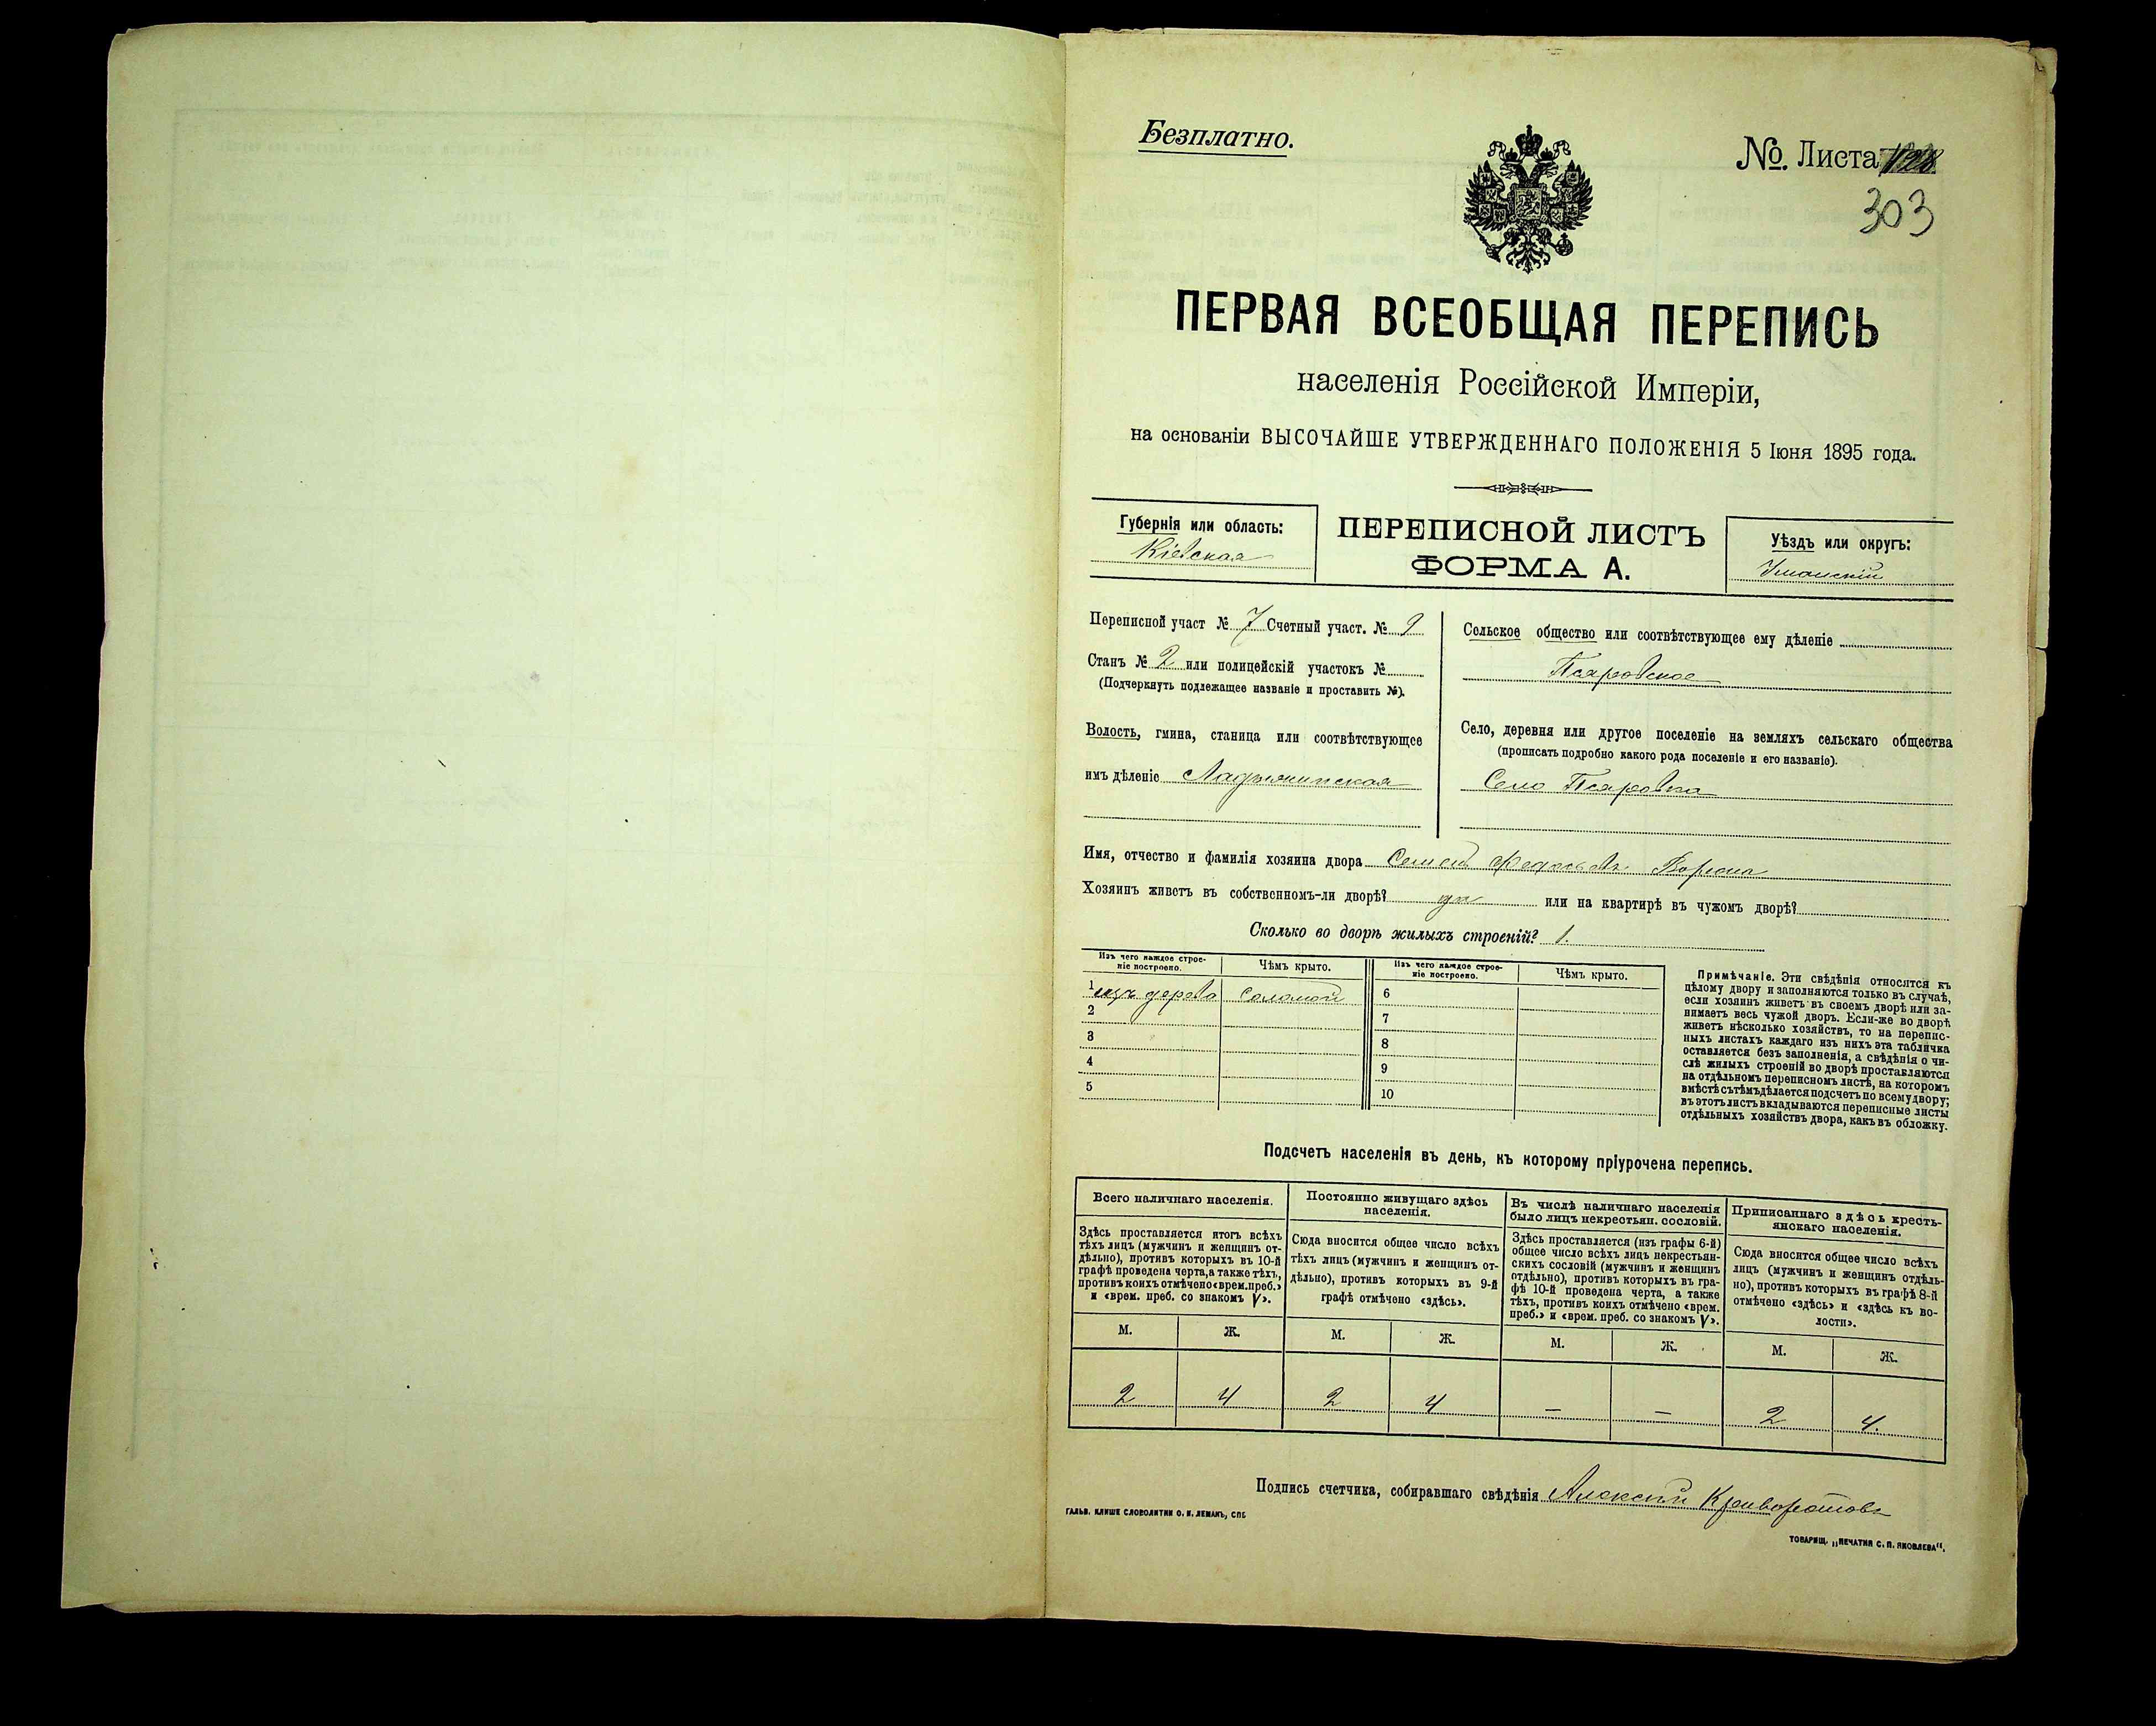 Безплатно.
№. Листа 128
303
ПЕРВАЯ ВСЕОБЩАЯ ПЕРЕПИСЬ
населенія Россійской Имперіи,
на основаніи ВЫСОЧАЙШЕ УТВЕРЖДЕННАГО ПОЛОЖЕНІЯ 5 Іюня 1895 года.
Губернія или область:
Кіевская
ПЕРЕПИСНОЙ ЛИСТЪ
ФОРМА А.
Уѣздъ или округъ:
Уманскій
Переписной участ № 7 Счетный участ. № 9
Станъ № 2 или полицейскій участокъ №
(Подчеркнуть подлежащее названіе и проставить №).
Волость, гмина, станица или соотвѣтствующее
имъ дѣленіе Ладыжинская
Сельское общество или соотвѣтствующее ему дѣленіе
Псяровское
Село, деревня или другое поселеніе на земляхъ сельскаго общества
(прописать подробно какого рода поселеніе и его названіе).
Село Псяровка
Имя, отчество и фамилія хозяина двора Семенъ
Хозяинъ живетъ въ собственномъ-ли дворѣ? да или на квартирѣ въ чужомъ дворѣ?
Сколько во дворѣ жилыхъ строеній? 1.
Изъ чего каждое строе-
ніе построено.
Чѣмъ крыто.
Изъ чего каждое строе-
ніе построено.
Чѣмъ крыто.
1 изъ дерева соломой 6
2 7
3 8
4 9
5 10
Примѣчаніе. Эти свѣдѣнія относятся къ
цѣлому двору и заполняются только въ случаѣ,
если хозяинъ живетъ въ своемъ дворѣ или за-
нимаетъ весь чужой дворъ. Если-же во дворѣ
живетъ нѣсколько хозяйствъ, то на перепис-
ныхъ листахъ каждаго изъ нихъ эта табличка
оставляется безъ заполненія, а свѣдѣнія о чи-
слѣ жилыхъ строеній во дворѣ проставляются
на отдѣльномъ переписномъ листѣ, на которомъ
вмѣстѣ съ тѣмъ дѣлается подсчетъ по всему двору;
въ этотъ листъ вкладываются переписные листы
отдѣльныхъ хозяйствъ двора, какъ въ обложку.
Подсчетъ населенія въ день, къ которому пріурочена перепись.
Всего наличнаго населенія.
Здѣсь проставляется итогъ всѣхъ
тѣхъ лицъ (мужчинъ и женщинъ от-
дѣльно), противъ которыхъ въ 10-й
графѣ проведена черта, а также тѣхъ,
противъ коихъ отмѣчено «врем. преб.»
и «врем. преб. со знакомъ V».
Постоянно живущаго здѣсь
населенія.
Сюда вносится общее число всѣхъ
тѣхъ лицъ (мужчинъ и женщинъ от-
дѣльно), противъ которыхъ въ 9-й
графѣ отмѣчено «здѣсь».
Въ числѣ наличнаго населенія
было лицъ некрестьян. сословій.
Здѣсь проставляется (изъ графы 6-й)
общее число всѣхъ лицъ некрестьян-
скихъ сословій (мужчинъ и женщинъ
отдѣльно), противъ которыхъ въ гра-
фѣ 10-й проведена черта, а также
тѣхъ, противъ коихъ отмѣчено «врем.
преб.» и «врем. преб. со знакомъ V».
Приписаннаго здѣсь кресть-
янскаго населенія.
Сюда вносится общее число всѣхъ
лицъ (мужчинъ и женщинъ отдѣль-
но), противъ которыхъ въ графѣ 8-й
отмѣчено «здѣсь» и «здѣсь къ во-
лости».
М. Ж. М. Ж. М. Ж. М. Ж.
2 4 2 4 — — 2 4.
Подпись счетчика, собиравшаго свѣдѣнія Алексѣй Криворотовъ
ГАЛЬВ. КЛИШЕ СЛОВОЛИТНИ О. И. ЛЕМАНЪ, СПБ
ТОВАРИЩ. „ПЕЧАТНЯ С. П. ЯКОВЛЕВА“.